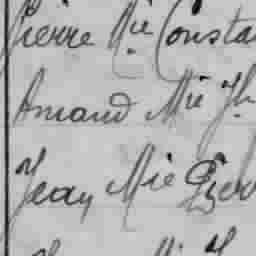 Pierre Mie Consta
Amand Mie Jh
Jean Mie